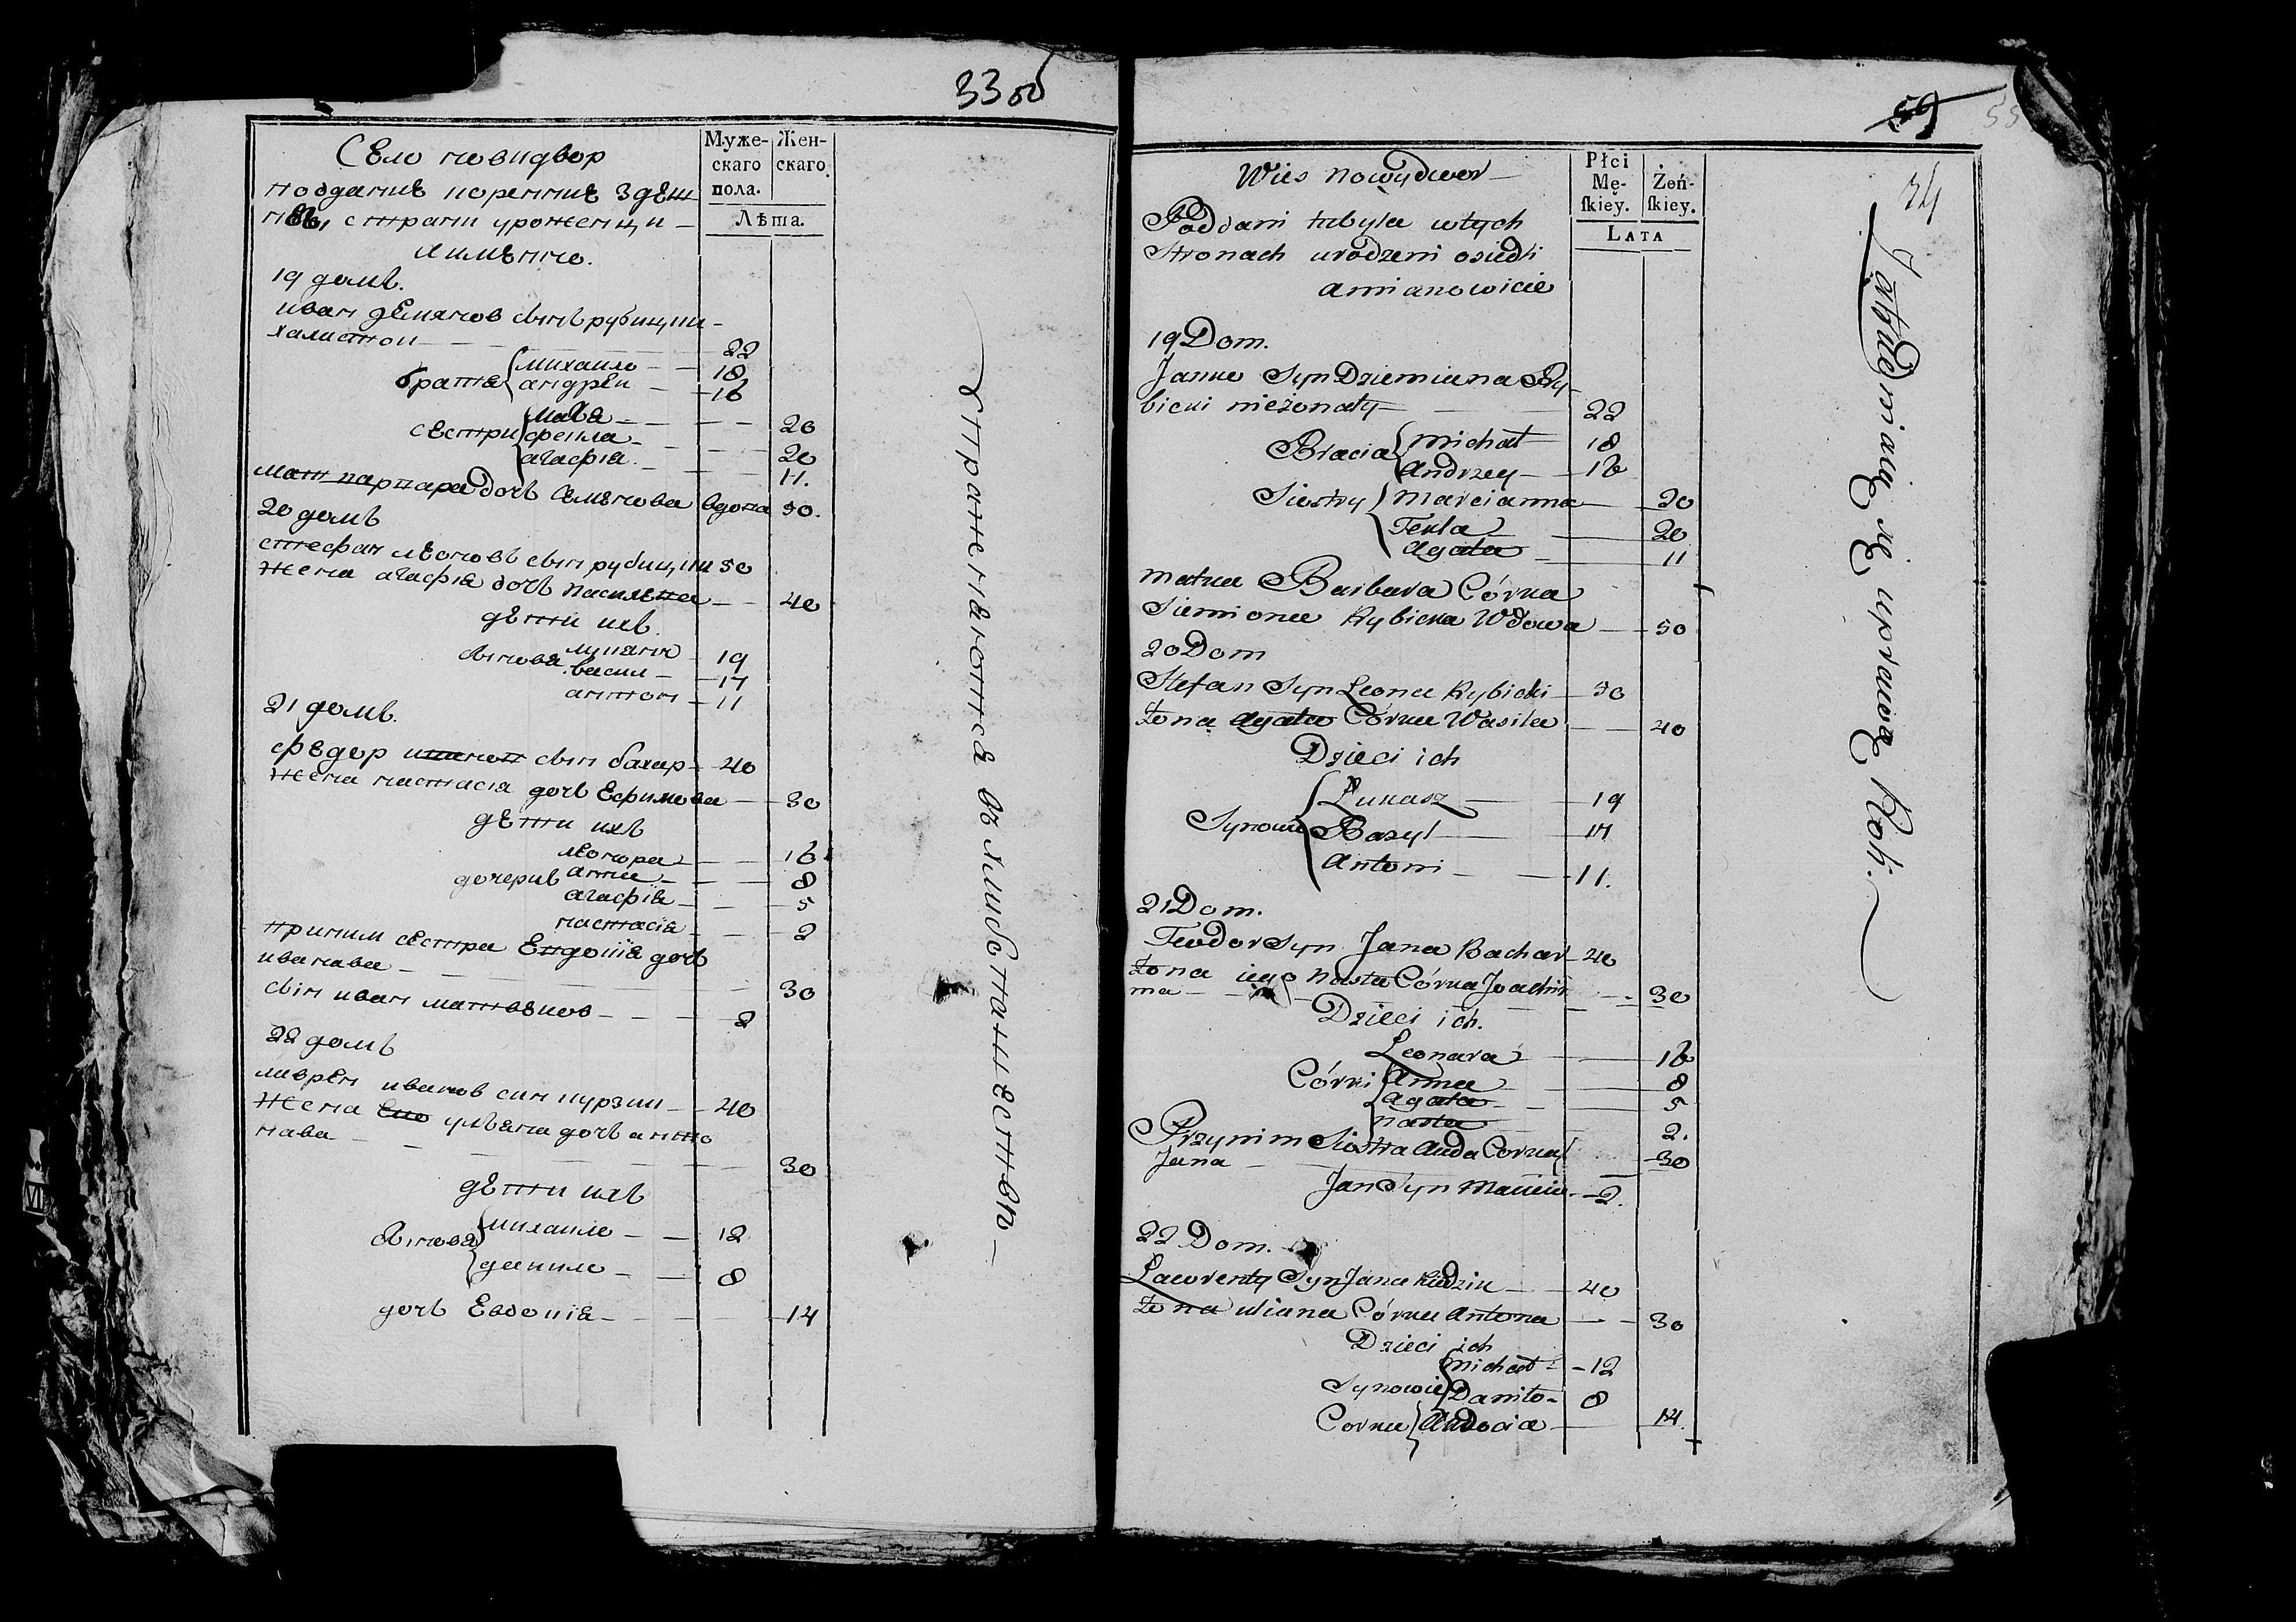 33 об
Село новидвор
подание коренние здеш
неи страни уроженци
а имѣнно.
Муже-
скаго
пола.
Жен-
скаго.
Лѣта.
19 домъ.
иван демянов синъ рубицки
халастои 22
братя михаило 18
андреи 16
сестри 20
20
агафия 11.
мат варвара дочъ семенова вдова 50.
20 домъ
стефан леоновъ син рубицки 50
жена агафия дочъ василева 40
дети ихъ
синовя лукаш 19
васил 17
антон 11
21 домъ.
федор иванов син бахар 40
жена настасия дочъ ефимова 30
дети ихъ
дочерив леонора 16
анна 8
агафия 5
настасия 2
приним сестра евдокия дочъ
иванава 30
син иван матвеиов 2
22 домъ
лаврен иванов син курзин 40
жена его улвяна дочъ анто
нава 30
дети ихъ
синовя михаило 12
данило 8
дочъ евдокия 14
59
55
34
Wies Nowydwor
Płci
Mę-
skiey.
Żeń-
skiey.
LATA
Poddani tubyla wtych
Stronach urodzeni osiedli
amianowicie
19 Dom.
Janko Syn Dziemiana Ry
bicki nieżonaty 22
Bracia Michał 18
Andrzey 16
Siostry Marcianna 20
Tekla 20
Agata 11
Matka Barbara Córka
Siemiona Rybicka Wdowa 50
20 Dom
Stefan Syn Leona Rybicki 50
Żona Agata Córka Wasila 40
Dzieci ich
Synowie Łukasz 19
Bazyl 17
Antoni 11.
21 Dom.
Teodor Syn Jana Bachar 40
Żona iego Nasta Córka Joachi
ma 30
Dzieci ich.
Leonara 16
Córki Anna 8
Agata 5
Nasta 2.
Przynim Siostra Auda Corka
Jana 30
Jan Syn Macieia 2.
22 Dom.
Lawrenty Syn Jana 40
Żona Uliana Córka Antona 30
Dzieci ich
Michał 12
Synowie Daniło 8
Corka Audocia 14.